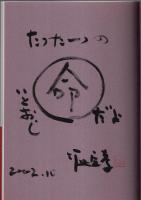 たった一つの
命
いとおし
だよ
2002.10